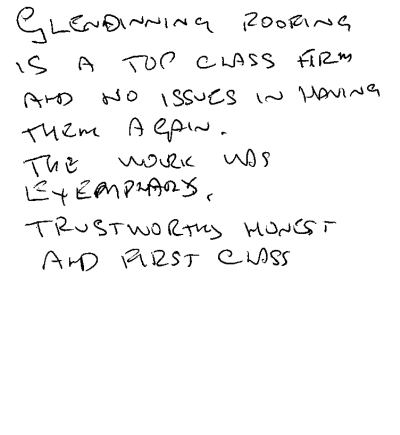 GLENDINNING ROOFING
IS A TOP CLASS FIRM
AND NO ISSUES IN HAVING
THEM AGAIN.
THE WORK WAS
EXEMPLARY.
TRUSTWORTHY HONEST
AND FIRST CLASS